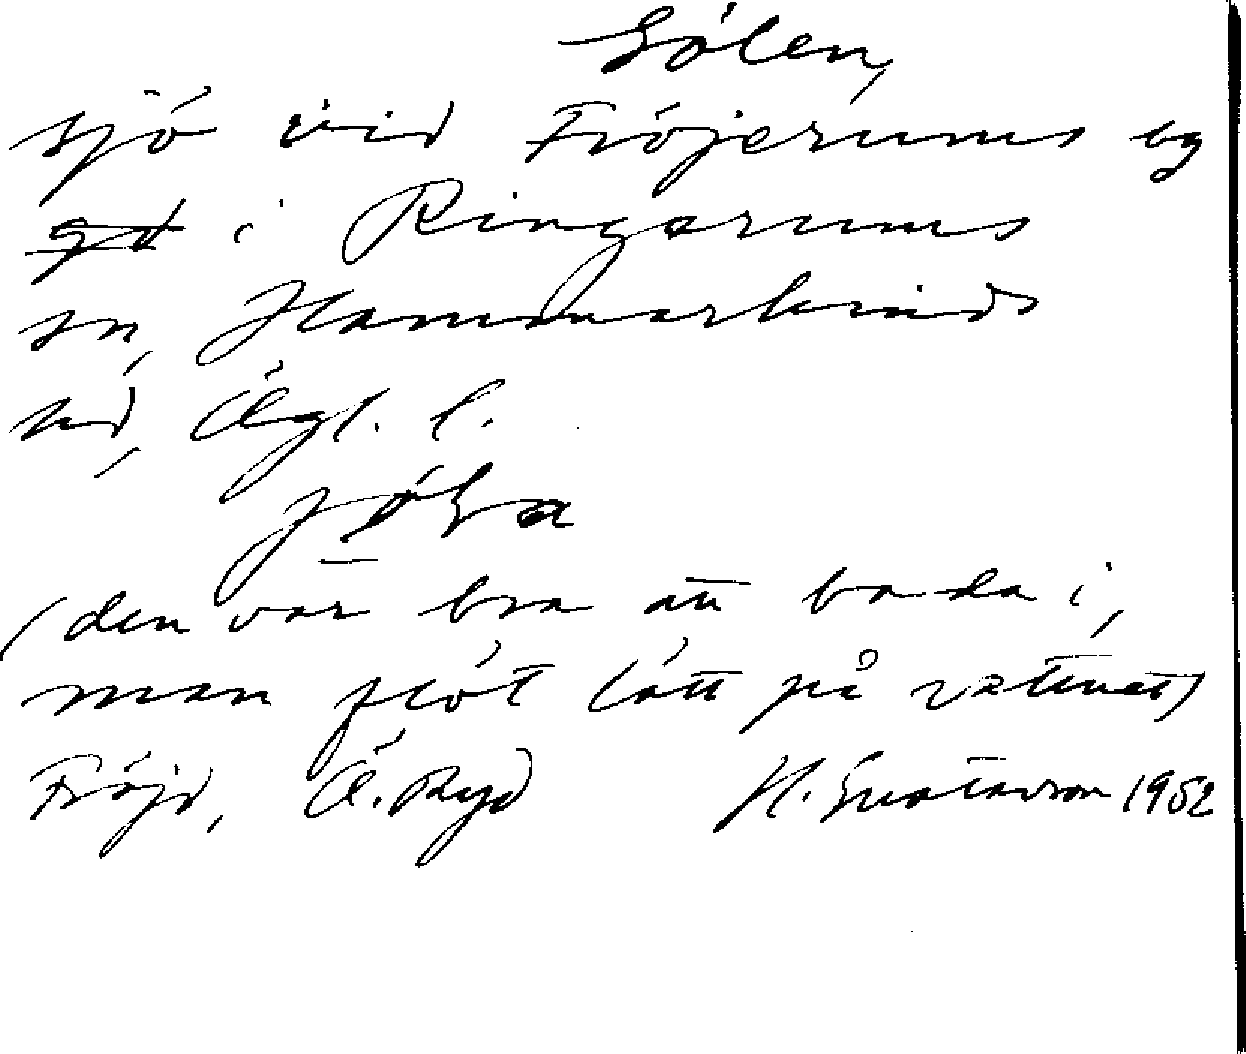 Sölen,
sjö vid Fröjerums by
gd i Ringarums
sn, Hammarkinds
hd, Ögl. l.
(den var bra att bada i,
man flöt lätt på vattnet)
Fröjd, Ö. Ryd H. Gustavson 1952